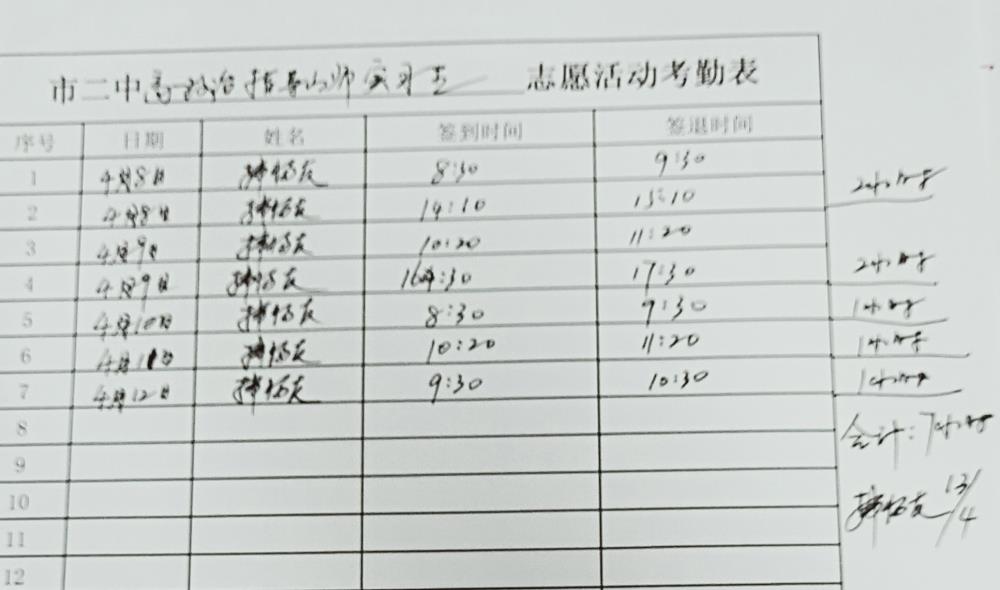 市二中高一政治指导师实习生 志愿活动考勤表
序号 日期 姓名 签到时间 签退时间
1 4月8日 8:30 9:30
2小时
2 4月8日 14:10 15:10
3 4月9日 10:20 11:20
2小时
4 4月9日 16:30 17:30
5 4月10日 8:30 9:30 1小时
6 4月11日 10:20 11:20 1小时
7 4月12日 9:30 10:30 1小时
8
合计:7小时
9
10
13/4
11
12